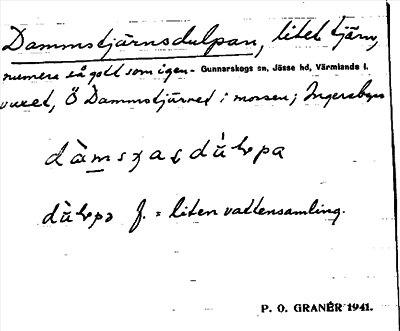 Dammstjärnsdulpan, litet tjärn,
numera så gott som igen- Gunnarskogs sn, Jösse hd, Värmlands l.
vuxet, Ö Dammstjärnet i mossen; Ingersbyn
dulpa f. = liten vattensamling.
P. O. GRANÉR 1941.